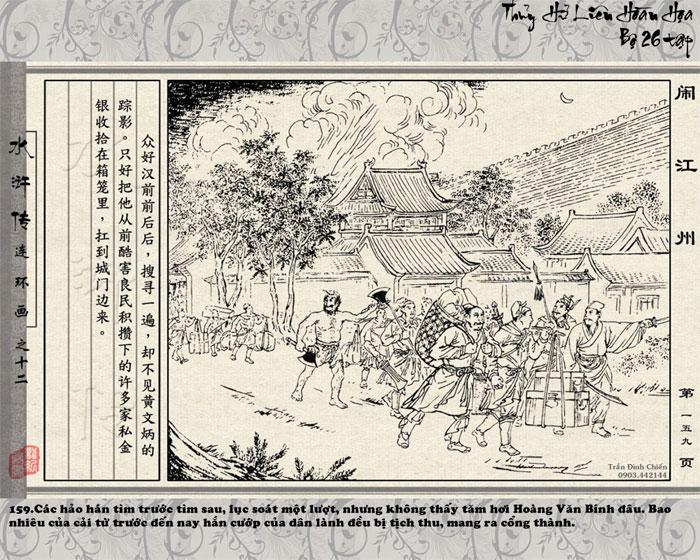 Thủy Hử Liên Hoàn Họa
Bộ 26 tập
闹江州
水浒传连环画之十二
众好汉前前后后，搜寻一遍，却不见黄文炳的
踪影。只好把他从前酷害良民积攒下的许多家私金
银收拾在箱笼里，扛到城门边来。
第一五九页
Trần Đình Chiến
0903.442144
159.Các hảo hán tìm trước tìm sau, lục soát một lượt, nhưng không thấy tăm hơi Hoàng Văn Bính đâu. Bao
nhiêu của cải từ trước đến nay hắn cướp của dân lành đều bị tịch thu, mang ra cổng thành.